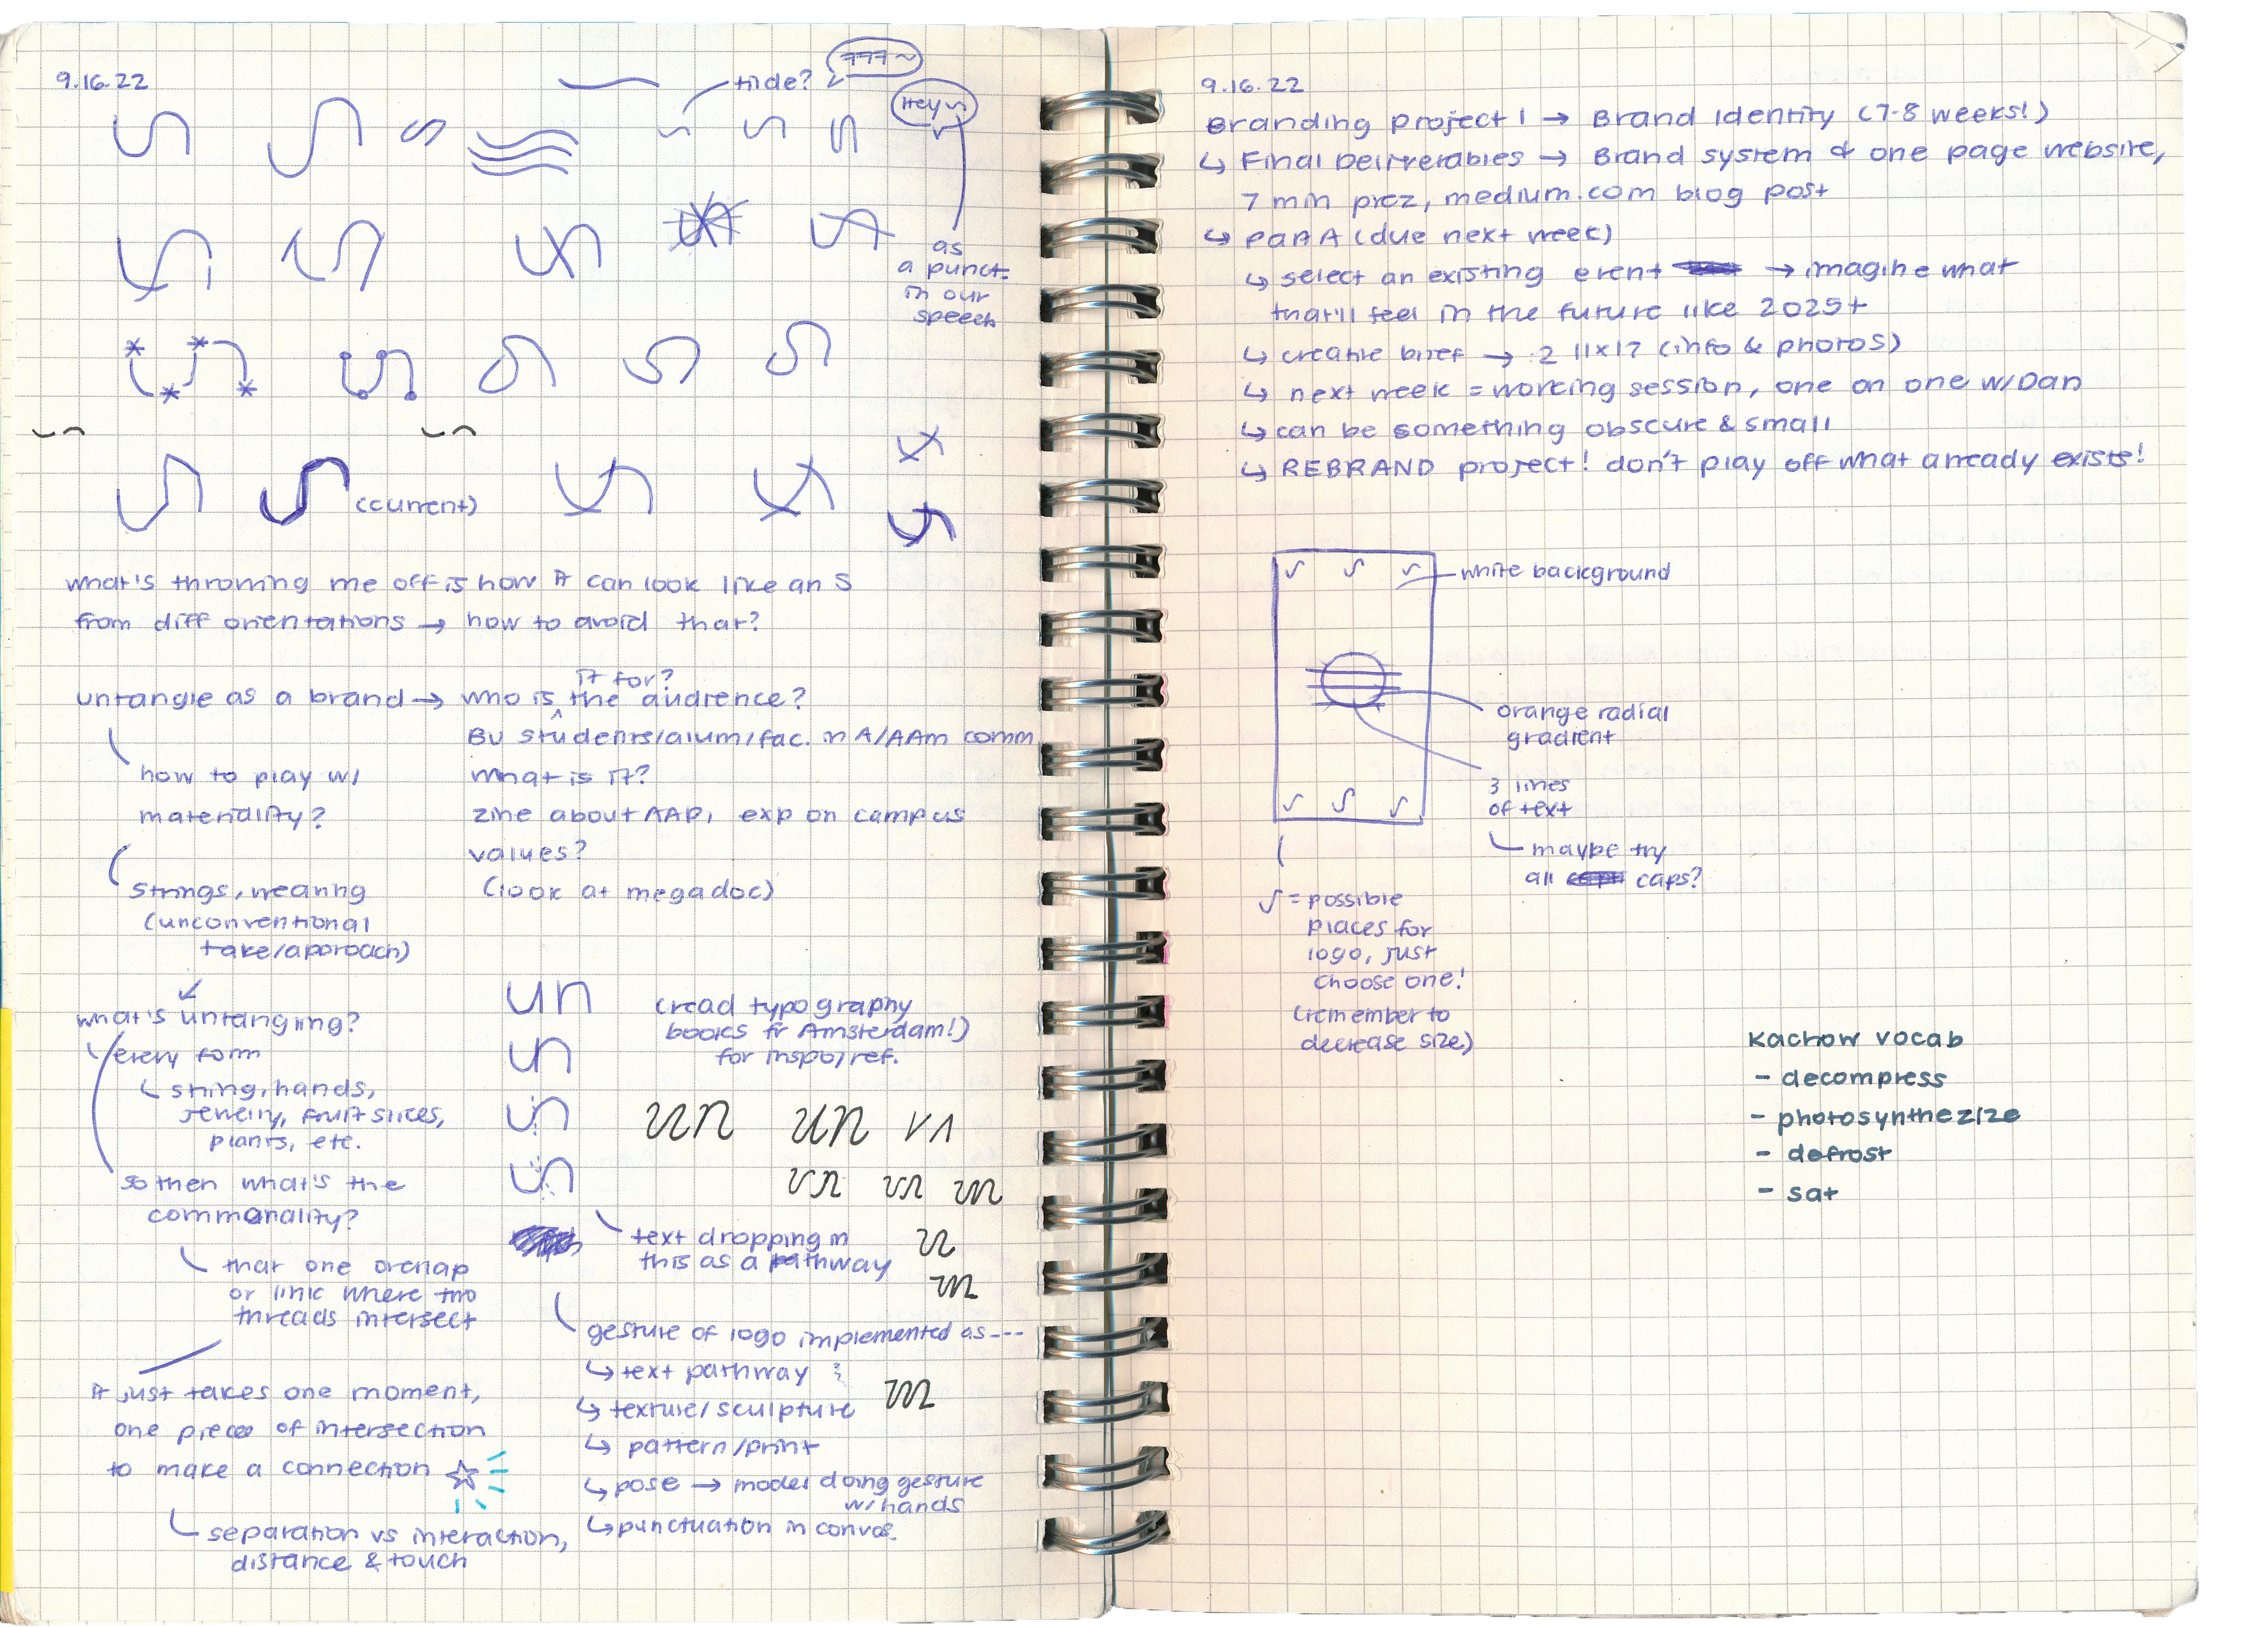 9.16.22
tilde?
777~
Hey ~
as
a punct.
in our
speech
(current)
what's throwing me off is how it can look like an S
from diff orientations → how to avoid that?
untangle as a brand → who is the audience?
it for?
BU students/alum/fac. in A/AAm comm
how to play w/
materiality?
what is it?
zine about AAPI exp on campus
values?
(look at megadoc)
strings, weaving
(unconventional
take/aporoach)
what's untangling?
every form
string, hands,
jewelry, fruit slices,
plants, etc.
so then what's the
commonality?
that one overlap
or link where two
threads intersect
it just takes one moment,
one piece of intersection
to make a connection ☆
separation vs interaction,
distance & touch
un
un
un
un
(read typography
books fr Amsterdam!)
for inspo/ref.
un un
un un un
text dropping in
this as a pathway
gesture of logo implemented as---
↳ text pathway
↳ texture/sculpture
↳ pattern/print
↳ pose → model doing gesture
w/ hands
↳ punctuation in convos
9.16.22
Branding project 1 → Brand Identity (7-8 weeks!)
↳ Final Deliverables → Brand system & one page website,
7 min prez, medium.com blog post
↳ part A (due next week)
↳ select an existing event → imagine what
that'll feel in the future like 2025+
↳ creative brief → 2 11x17 (info & photos)
↳ next week = working session, one on one w/ Dan
↳ can be something obscure & small
↳ REBRAND project! don't play off what already exists!
white background
orange radial
gradient
3 lines
of text
maybe try
all caps?
= possible
places for
logo, just
choose one!
(remember to
decrease size)
Kachow vocab
- decompress
- photosynthezize
- defrost
- sat